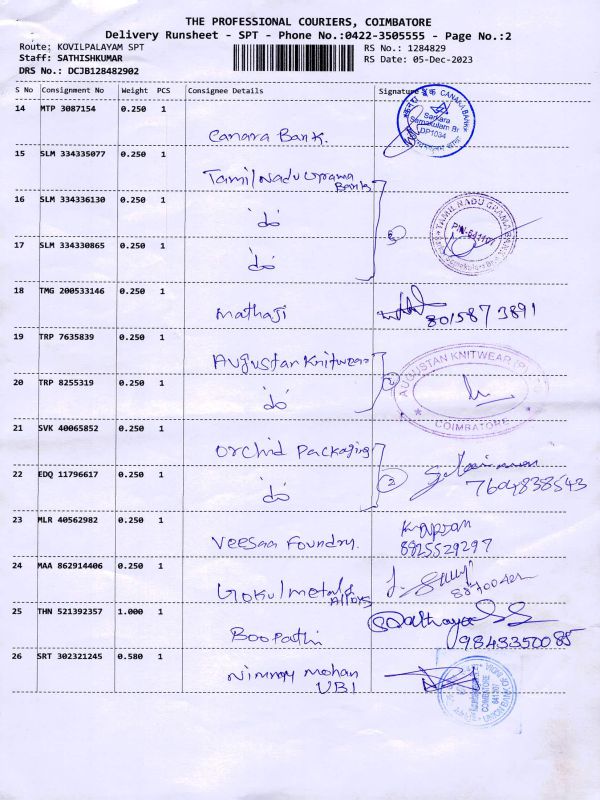 THE PROFESSIONAL COURIERS, COIMBATORE
Delivery Runsheet - SPT - Phone No.:0422-3505555 - Page No.:2
Route: KOVILPALAYAM SPT RS No.: 1284829
Staff: SATHISHKUMAR RS Date: 05-Dec-2023
DRS No.: DCJB128482902
S No Consignment No Weight PCS Consignee Details Signature
14 MTP 3087154 0.250 1 Canara Bank.
CANARA BANK
DP1034
15 SLM 334335077 0.250 1 Tamil Nadu Grama Bank
16 SLM 334336130 0.250 1 do
TAMIL NADU GRAMA BANK
PIN-641107
17 SLM 334330865 0.250 1 do
18 TMG 200533146 0.250 1 Mathaji 801587 3891
19 TRP 7635839 0.250 1 Augustan Knitwear
AUGUSTAN KNITWEAR
COIMBATORE
20 TRP 8255319 0.250 1 do 2
21 SVK 40065852 0.250 1 Orchid Packaging
22 EDQ 11796617 0.250 1 do 7604838543
23 MLR 40562982 0.250 1 Veesaa Foundry. 8825529297
24 MAA 862914406 0.250 1 Gokul metals Alloys
25 THN 521392357 1.000 1 Boopathi 9843350085
26 SRT 302321245 0.580 1 mohan UBI
UNION BANK OF INDIA
COIMBATORE
641107